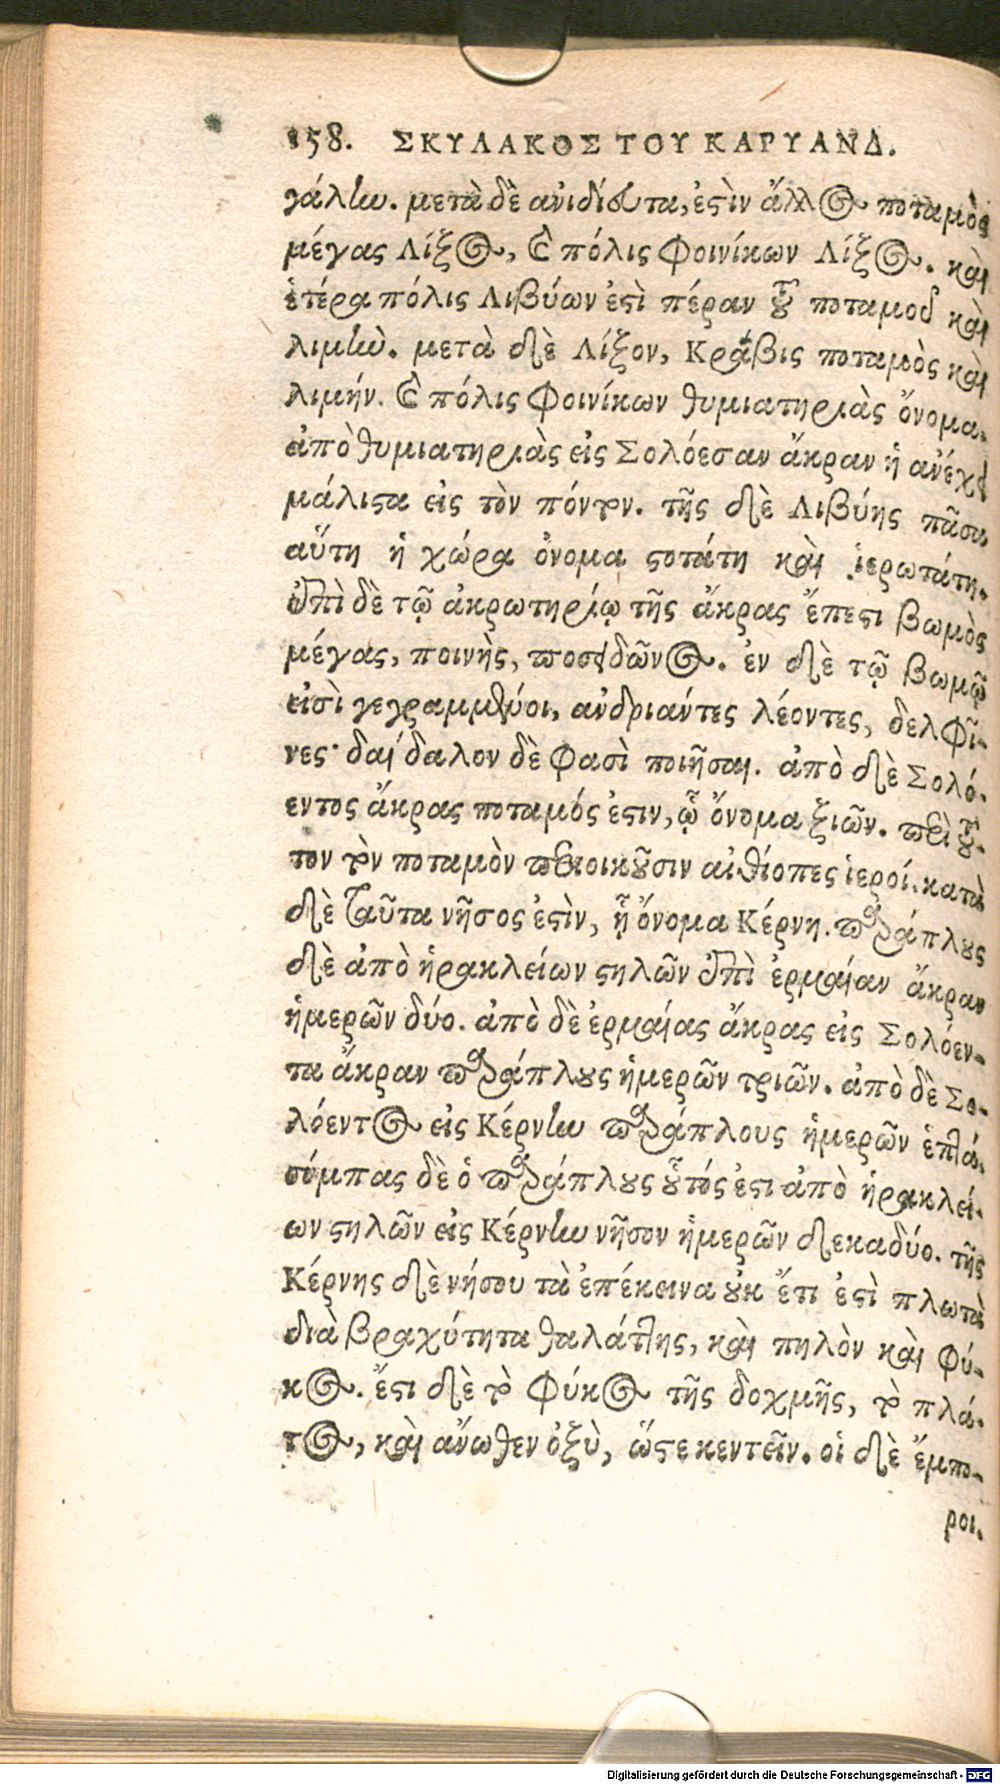 158. ΣΚΥΛΑΚΟΣ ΤΟΥ ΚΑΡΥΑΝΔ.
γάλην. μετὰ δὲ ἀνιδίσητα, ἐςὶν ἄλλος ποταμὸς
μέγας Λίξος, καὶ πόλις Φοινίκων Λίξος. καὶ
ἑτέρα πόλις Λιβύων ἐςὶ πέραν τοῦ ποταμοῦ καὶ
λιμήν. μετὰ δὲ Λίξον, Κράβις ποταμὸς καὶ
λιμήν. καὶ πόλις Φοινίκων θυμιατηριὰς ὄνομα.
ἀπὸ θυμιατηριὰς εἰς Σολόεσαν ἄκραν ἡ ἀνέχει
μάλιςα εἰς τὸν πόντον. τῆς δὲ Λιβύης πᾶσα
αὕτη ἡ χώρα ὀνομα ςοτάτη καὶ ἱερωτάτη.
ἐπὶ δὲ τῷ ἀκρωτηρίῳ τῆς ἄκρας ἔπεςι βωμὸς
μέγας, ποινὴς, ποσειδῶνος. ἐν δὲ τῷ βωμῷ
εἰσὶ γεγραμμένοι, ἀνδριάντες λέοντες, δελφῖ-
νες· δαίδαλον δὲ φασὶ ποιῆσαι. ἀπὸ δὲ Σολό-
εντος ἄκρας ποταμός ἐςιν, ᾧ ὄνομα ξιῶν. περὶ τοῦ-
τον τὸν ποταμὸν περιοικοῦσιν αἰθίοπες ἱεροί. κατὰ
δὲ ταῦτα νῆσος ἐςὶν, ᾗ ὄνομα Κέρνη. παράπλους
δὲ ἀπὸ ἡρακλείων ςηλῶν ἐπὶ ἑρμαίαν ἄκραν
ἡμερῶν δύο. ἀπὸ δὲ ἑρμαίας ἄκρας εἰς Σολόεν-
τα ἄκραν παράπλους ἡμερῶν τριῶν. ἀπὸ δὲ Σο-
λόεντος εἰς Κέρνην παράπλους ἡμερῶν ἑπτά.
σύμπας δὲ ὁ παράπλους οὗτός ἐςι ἀπὸ ἡρακλεί-
ων ςηλῶν εἰς Κέρνην νῆσον ἡμερῶν δεκαδύο. τῆς
Κέρνης δὲ νήσου τὰ ἐπέκεινα οὐκ ἔτι ἐςὶ πλωτὰ
διὰ βραχύτητα θαλάττης, καὶ πηλὸν καὶ φύ-
κος. ἔςι δὲ τὸ φύκος τῆς δοχμῆς, τὸ πλά-
τος, καὶ ἄνωθεν ὀξὺ, ὥςε κεντεῖν. οἱ δὲ ἔμπο-
ροι.
Digitalisierung gefördert durch die Deutsche Forschungsgemeinschaft - DFG